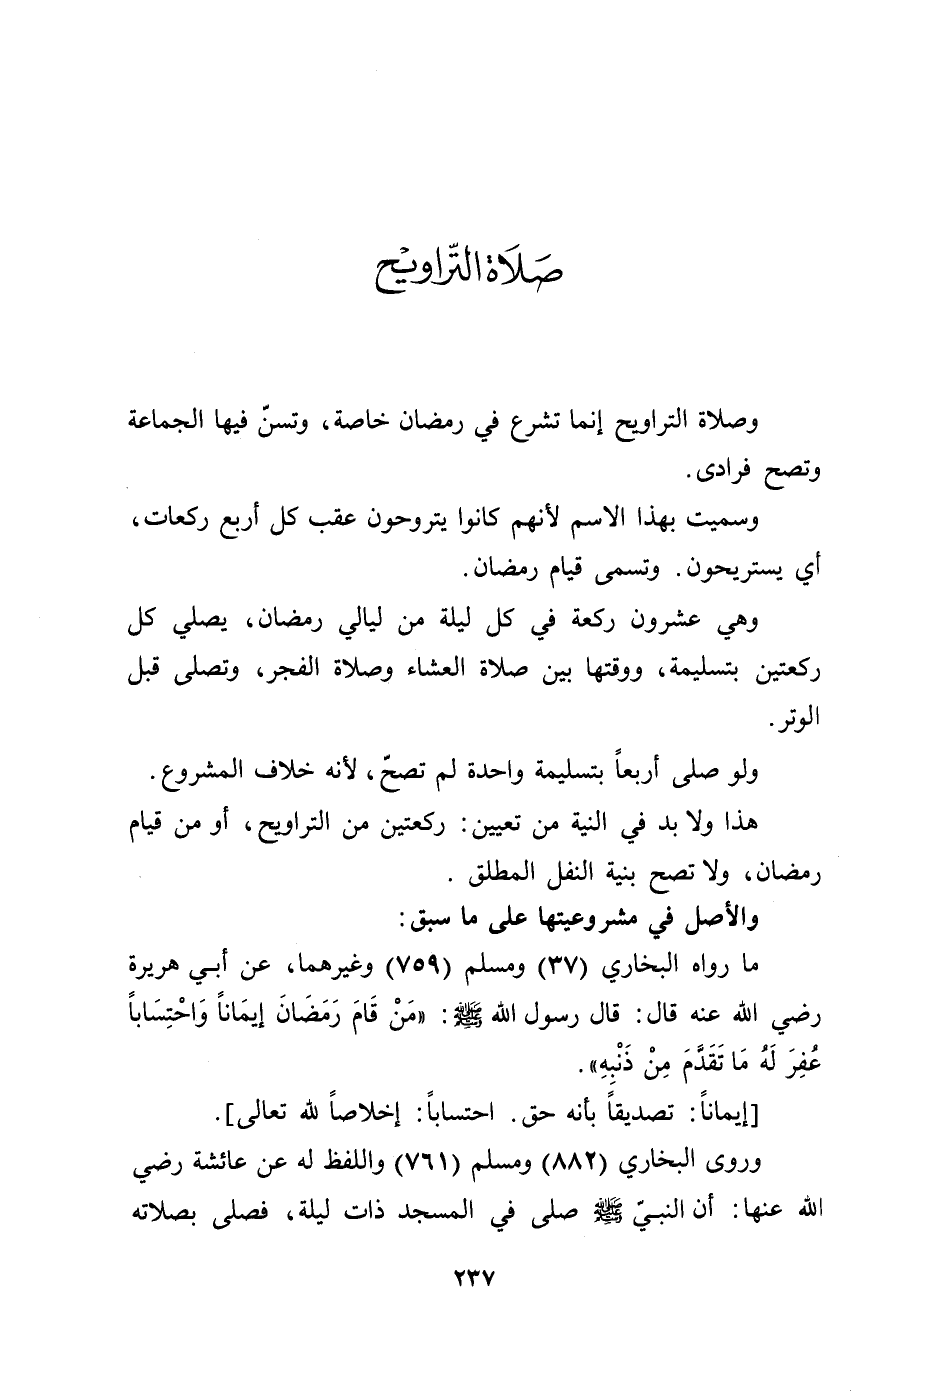 صَلَاة التّراويح
وصلاة التراويح إنما تشرع في رمضان خاصة، وتسنّ فيها الجماعة
وتصح فرادى.
وسميت بهذا الاسم لأنهم كانوا يتروحون عقب كل أربع ركعات،
أي يستريحون. وتسمى قيام رمضان.
وهي عشرون ركعة في كل ليلة من ليالي رمضان، يصلي كل
ركعتين بتسليمة، ووقتها بين صلاة العشاء وصلاة الفجر، وتصلى قبل
الوتر.
ولو صلى أربعاً بتسليمة واحدة لم تصحّ، لأنه خلاف المشروع.
هذا ولا بد في النية من تعيين: ركعتين من التراويح، أو من قيام
رمضان، ولا تصح بنية النفل المطلق .
والأصل في مشروعيتها على ما سبق:
ما رواه البخاري (٣٧) ومسلم (٧٥٩) وغيرهما، عن أبي هريرة
رضي الله عنه قال: قال رسول الله ﷺ: «مَنْ قَامَ رَمَضَانَ إيمَاناً وَاحْتِسَاباً
غُفِرَ لَهُ مَا تَقَدَّمَ مِنْ ذَنْبِهِ».
[إيماناً: تصديقاً بأنه حق. احتساباً: إخلاصاً لله تعالى].
وروى البخاري (٨٨٢) ومسلم (٧٦١) واللفظ له عن عائشة رضي
الله عنها: أن النبيّ ﷺ صلى في المسجد ذات ليلة، فصلى بصلاته
٢٣٧